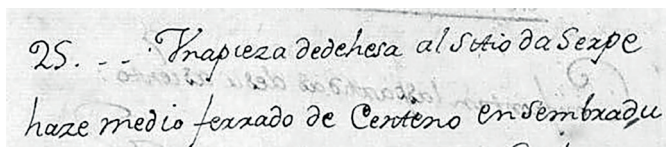 25. - - . Vna pieza de dehesa al Sitio da Serpe
haze medio ferrado de Centeno en Sembradu